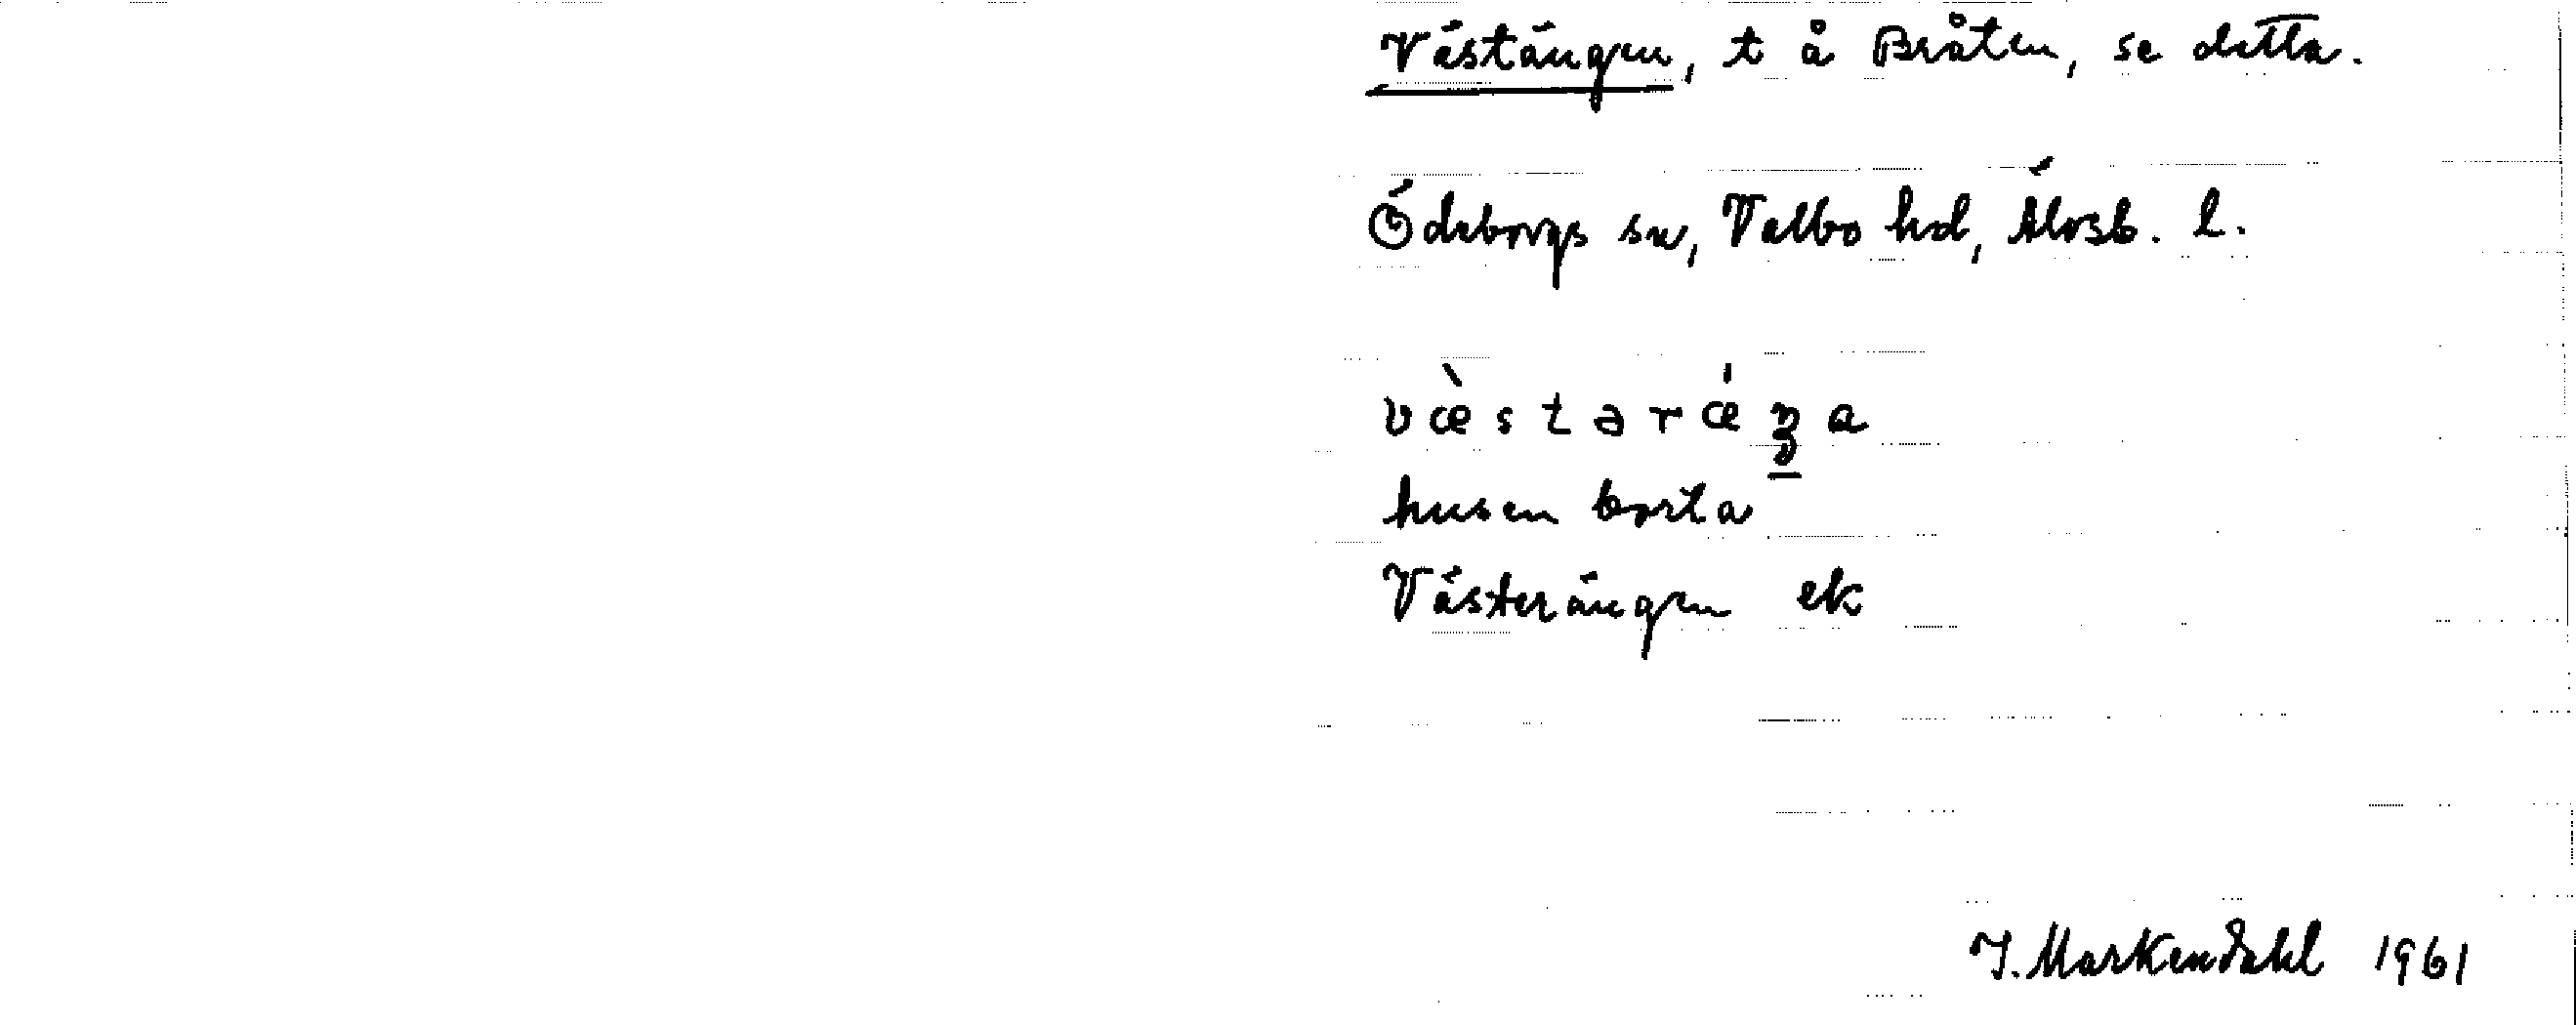 Västängen, t å Bråten, se detta.
Ödeborgs sn, Valbo hd, Älvsb. l.
væ̀stərǽʒa
husen borta
Västerängen ek
J. Markendahl 1961